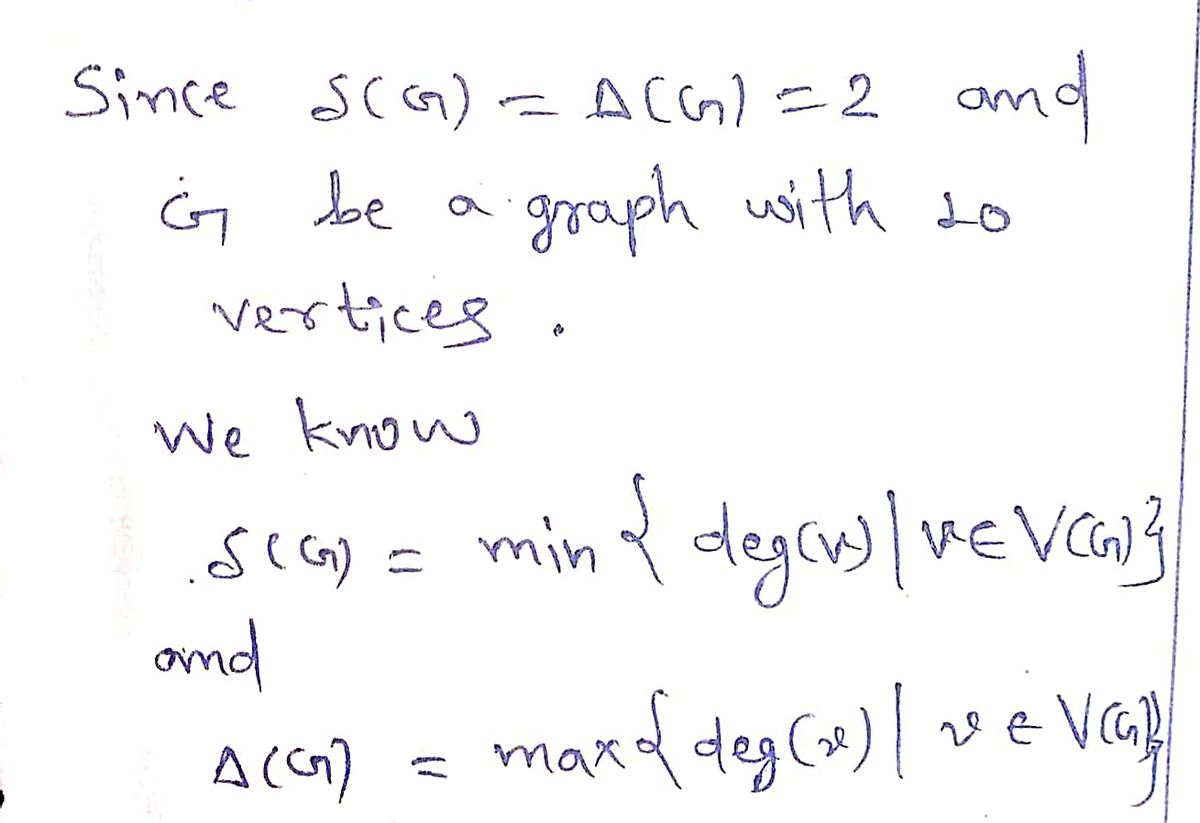 Since δ(G) = Δ(G) = 2 and
G be a graph with 10
vertices .
We know
δ(G) = min { deg(v) | v ∈ V(G)}
and
Δ(G) = max { deg(v) | v ∈ V(G)}